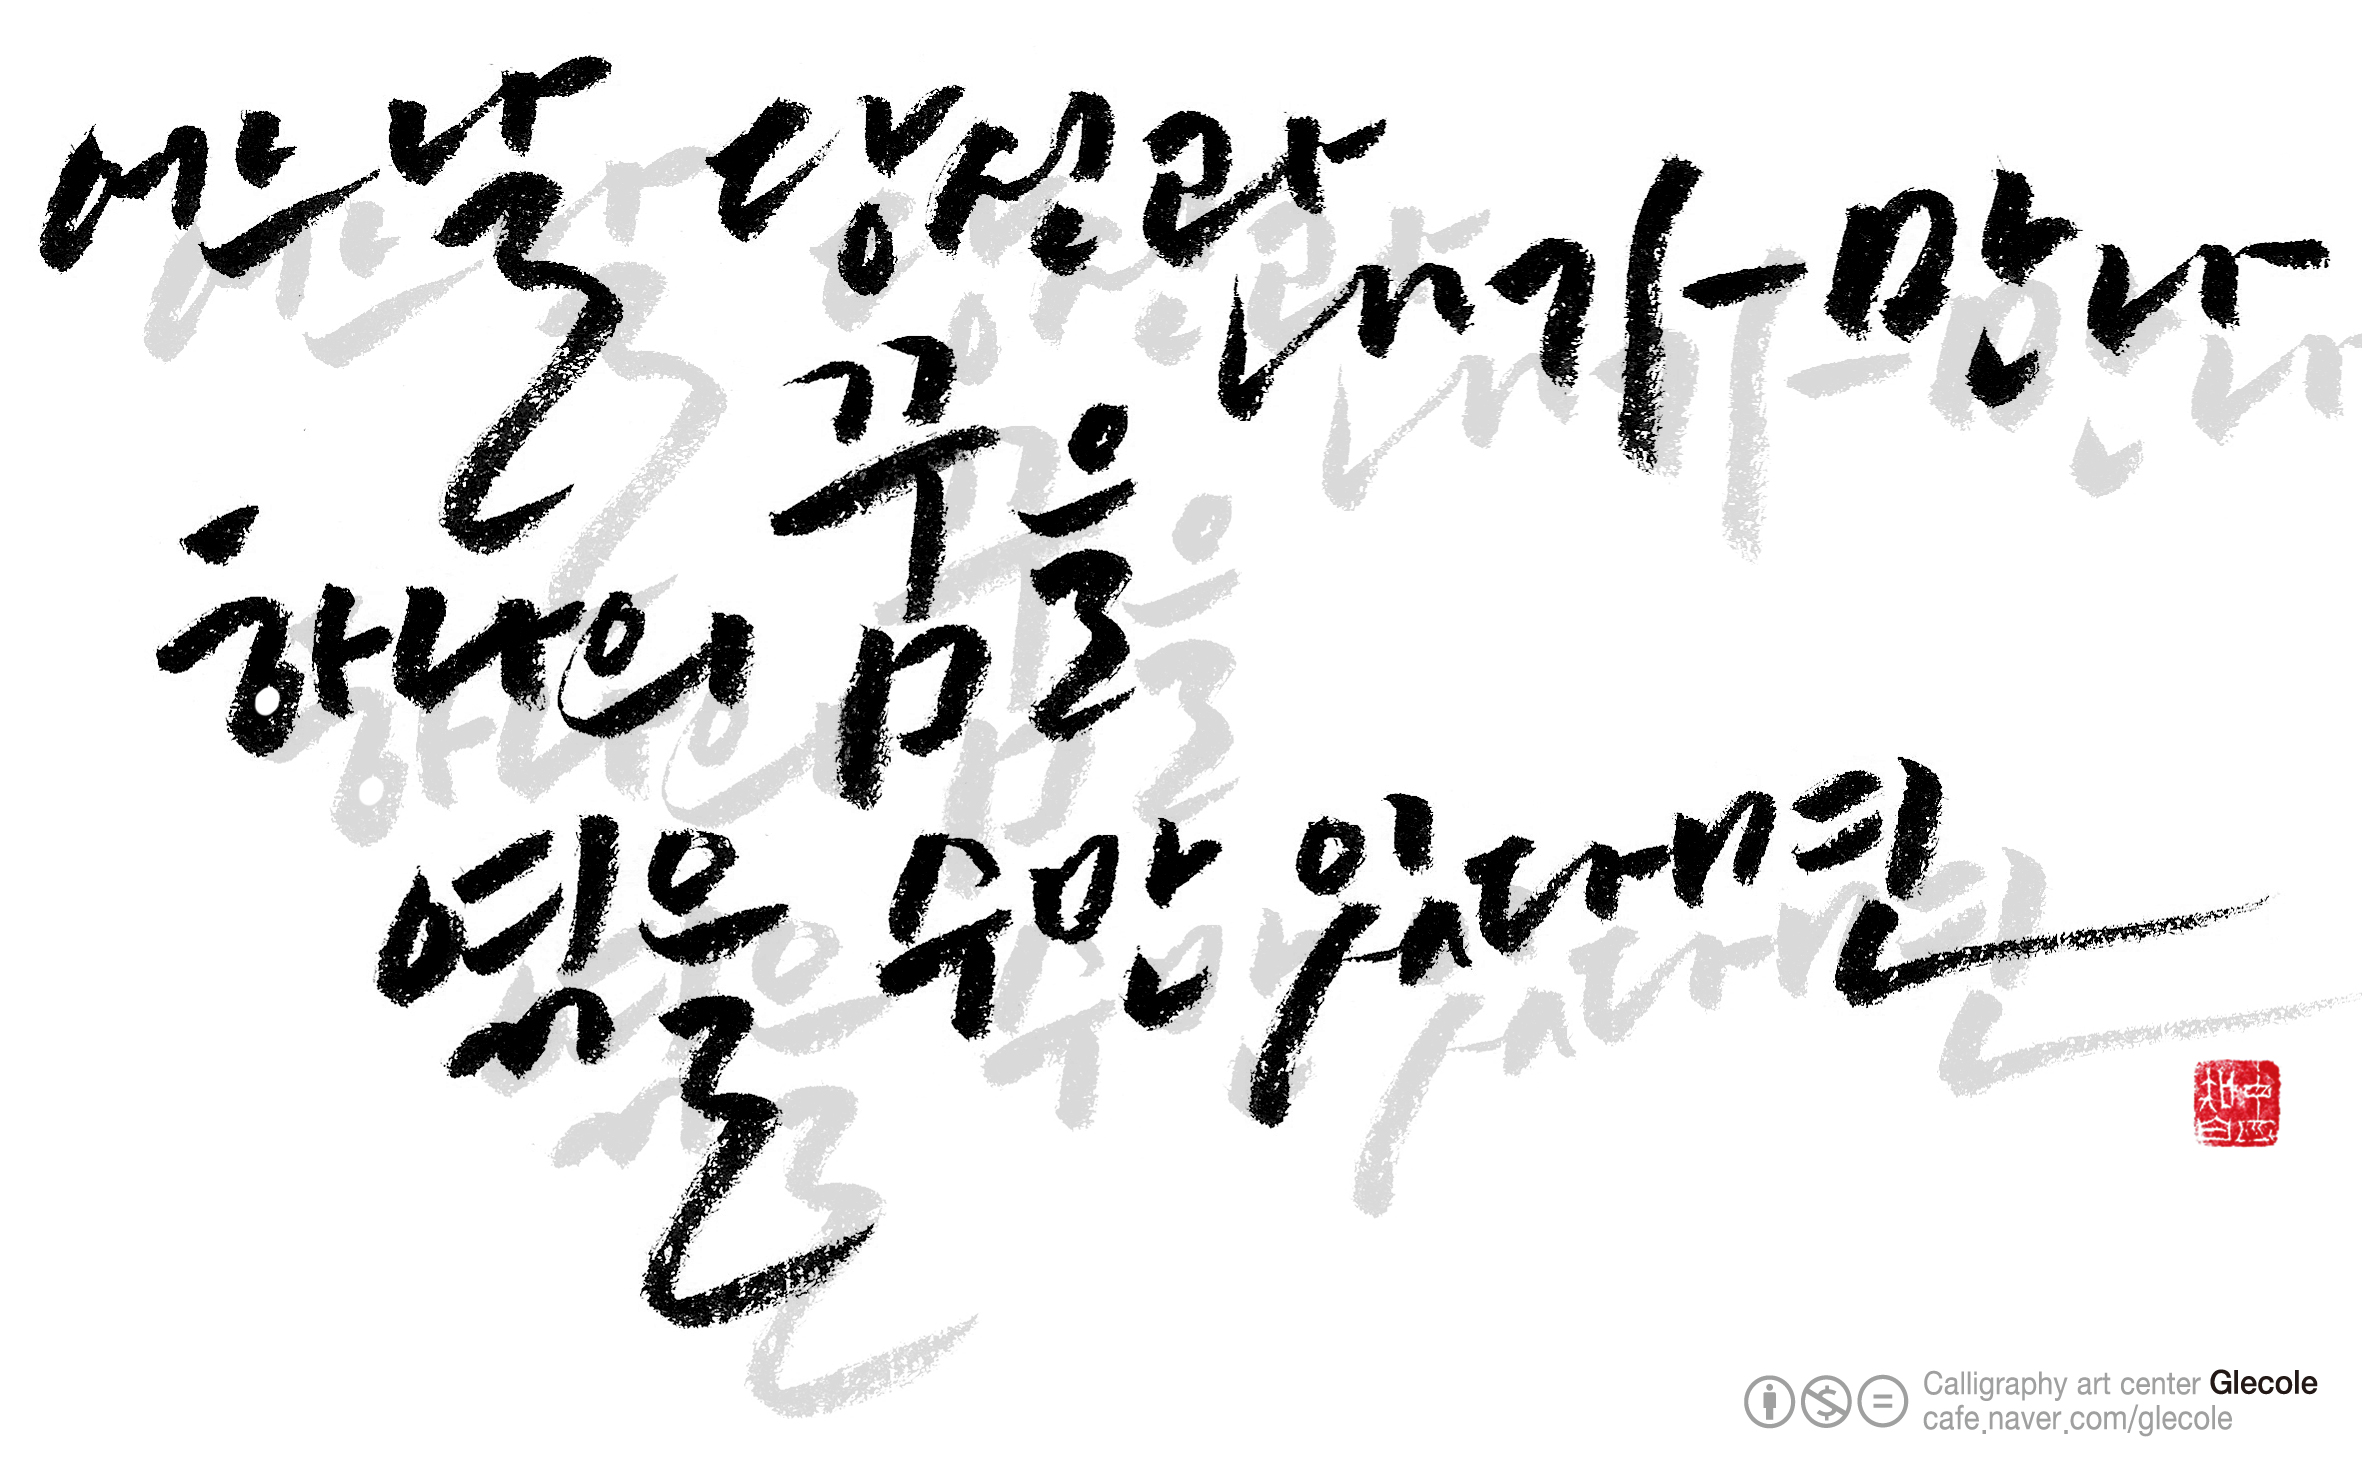 어느 날 당신과 내가 만나
하나의 꿈을
엮을 수만 있다면
Calligraphy art center Glecole
cafe.naver.com/glecole